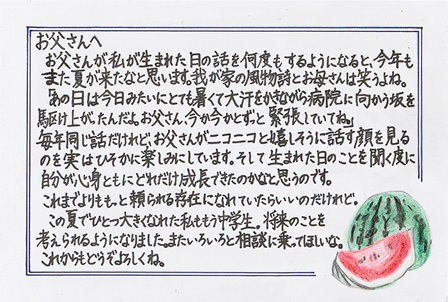 お父さんへ
お父さんが私が生まれた日の話を何度もするようになると、今年も
また夏が来たなと思います。我が家の風物詩とお母さんは笑うよね。
「あの日は今日みたいにとても暑くて大汗をかきながら病院に向かう坂を
駆け上が、たんだよ。お父さん、今か今かとずっと緊張していてね」
毎年同じ話だけれど、お父さんがニコニコと嬉しそうに話す顔を見る
のを実はひそかに楽しみにしています。そして生まれた日のことを聞く度に
自分が心身ともにどれだけ成長できたのかなと思うのです。
これまでよりもっと頼られる存在になれていたらいいのだけれど。
この夏でひとつ大きくなれた私ももう中学生。将来のことを
考えられるようになりました。またいろいろと相談に乗ってほしいな。
これからもどうぞよろしくね。